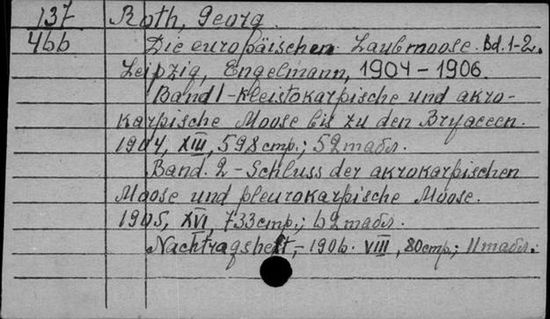 137 Roth, Georg.
466 Die europäischen Laubmoose. Bd. 1-2.
Leipzig, Engelmann, 1904 - 1906.
Band 1 - Kleistokarpische und akro-
karpische Moose bis zu den Bryaceen.
1904, XIII, 598 стр.; 52 табл.
Band. 2 - Schluss der akrokarpischen
Moose und pleurokarpische Moose.
1905, XVI, 733 стр.; 62 табл.
Nachtragsheft, - 1906. VIII, 80 стр.; 11 табл.